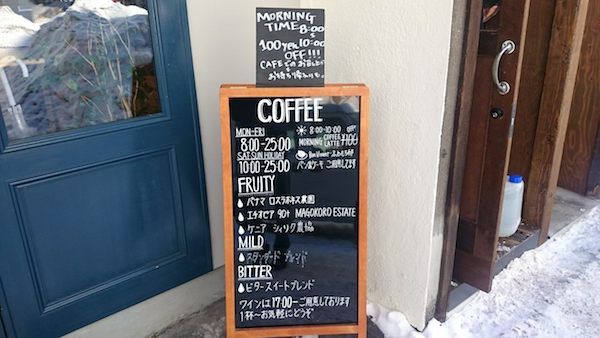 MORNING
TIME 8:00
~
100yen 10:00
OFF!!!
CAFEでのお召し上がり
お持ち帰りも。
COFFEE
MON-FRI
8:00-25:00
SAT.SUN.HOLIDAY
10:00-25:00
8:00-10:00 OFF
MORNING COFFEE LATTE ¥100
パン&ケーキ ご用意してます
FRUITY
パナマ ロスラホネス農園
エチオピア 90+ MAGOKORO ESTATE
ケニア シィリク農協
MILD
スタンダード ブレンド
BITTER
ビタースイートブレンド
ワインは17:00〜ご用意しております
1杯〜お気軽にどうぞ